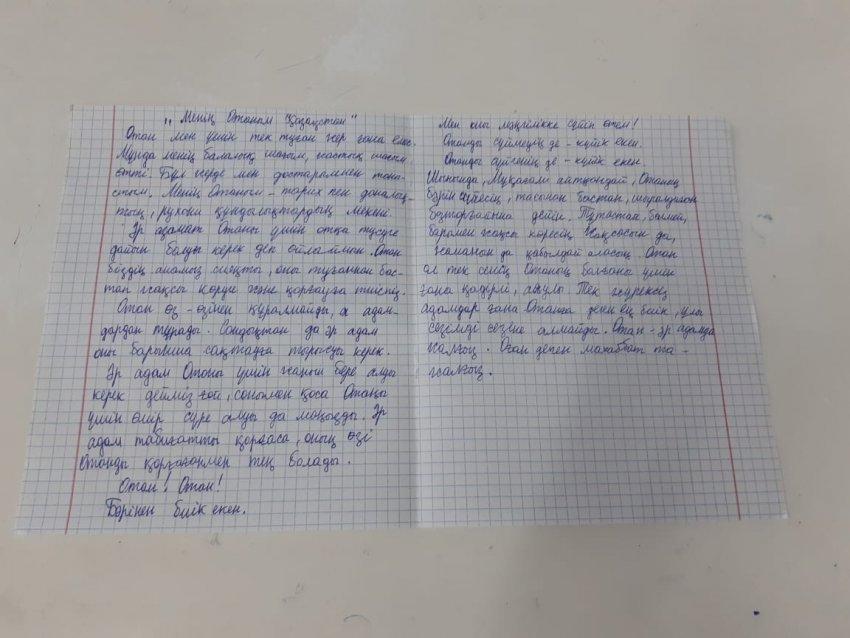 „Менің Отаным Қазақстан"
Отан мен үшін тек туған жер ғана емес.
Мұнда менің балалық шағым, жастық шағым
өтті. Бұл жерде мен достарыммен таныс-
тым. Менің Отаным – тарих пен даналық-
тың, рухани құндылықтардың мекені.
Әр азамат Отаны үшін отқа түсуге
дайын болуы керек деп ойлаймын. Отан
біздің анамыз сияқты, оны туғаннан бас-
тап жақсы көруге және қорғауға тиіспіз.
Отан өз-өзінен құралмайды, ол адам-
дардан тұрады. Сондықтан да әр адам
оны барынша сақтауға тырысуы керек.
Әр адам Отаны үшін жанын бере алуы
керек дейміз ғой, сонымен қоса Отаны
үшін өмір сүре алуы да маңызды. Әр
адам табиғатты қорғаса, оның өзі
Отанды қорғағанмен тең болады.
Отан! Отан!
Бәрінен биік екен.
Мен оны мәңгілікке сүйіп өтем!
Отанды сүймеуің де – күпік екен.
Отанды сүйгенің де – күпік екен.
Шынында, Мұқағали айтқандай, Отанның
бәрін сүйесің, тасынан бастап, шырылдаған
бозторғайына дейін. Тұтастай, бәлкім,
барымен жақсы көресің. Жақсысын да,
жаманын да қабылдай аласың. Отан
ол тек сенің Отаның болғаны үшін
ғана қадірлі, аяулы. Тек жүрексіз
адамдар ғана Отанға деген ең биік, ұлы
сезімді сезіне алмайды. Отан – әр адамда
жалғыз. Оған деген махаббат та –
жалғыз.